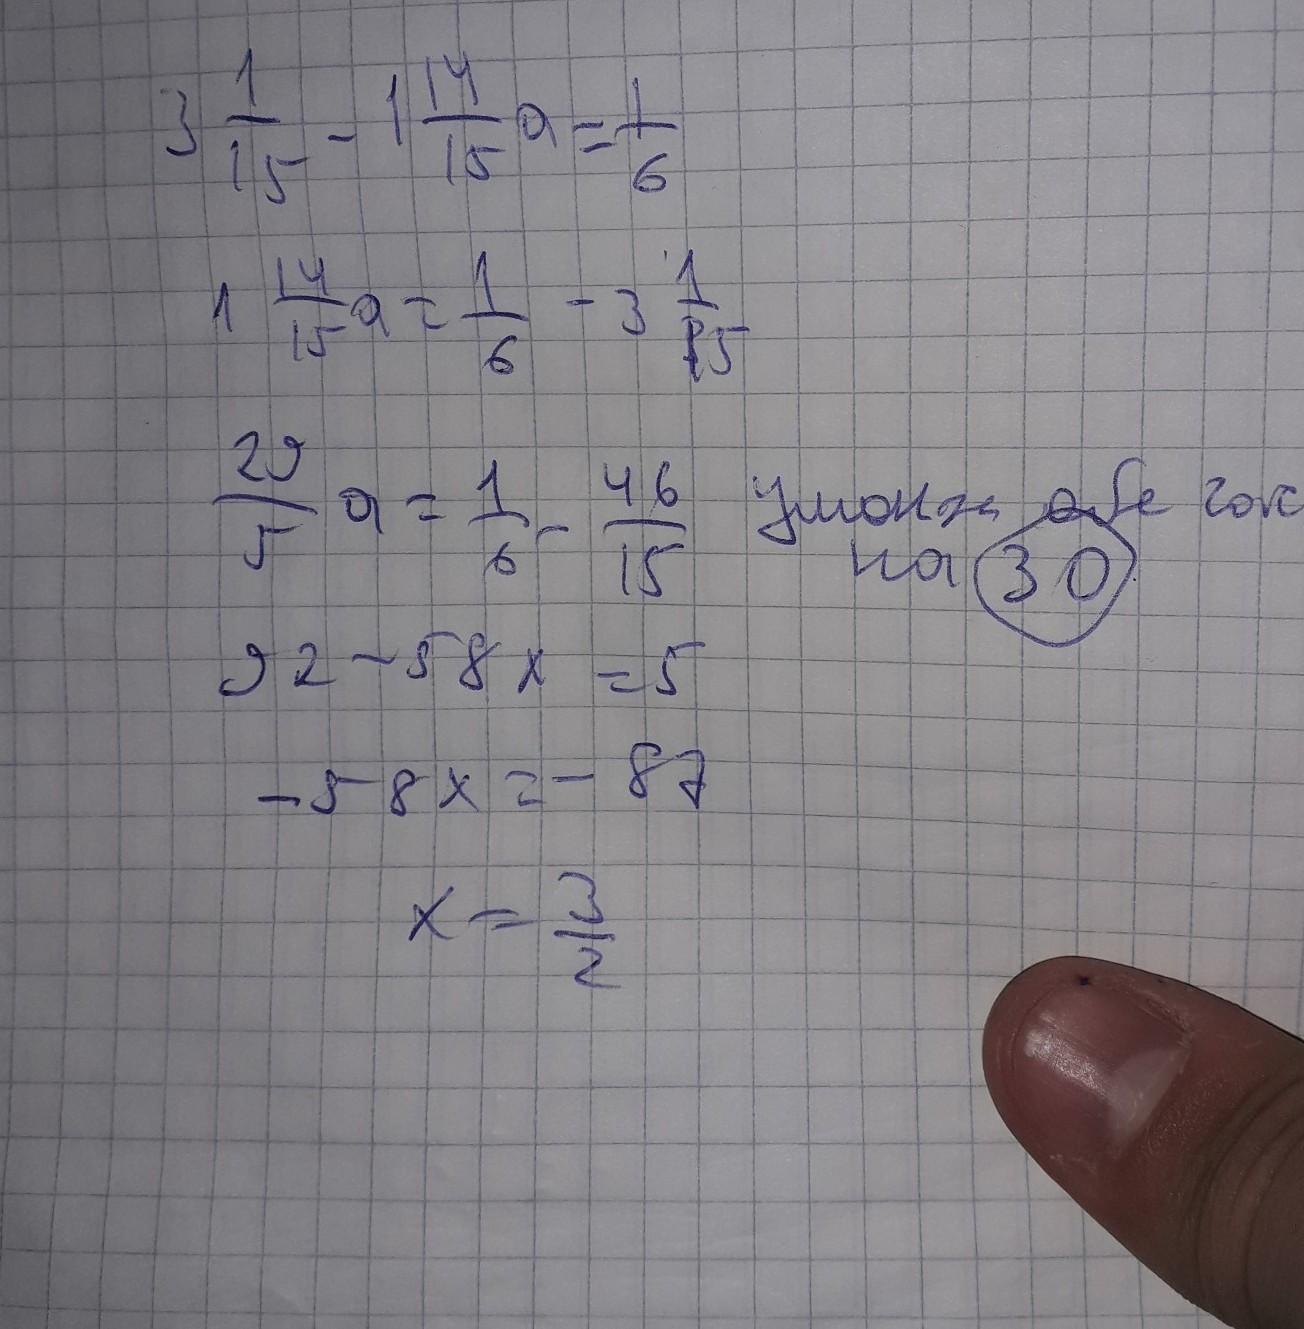 3 1/15 - 1 14/15 a = 1/6
1 14/15 a = 1/6 - 3 1/15
29/5 a = 1/6 - 46/15 умонж обе
на 30
92 - 58x = 5
-58x = -87
x = 3/2